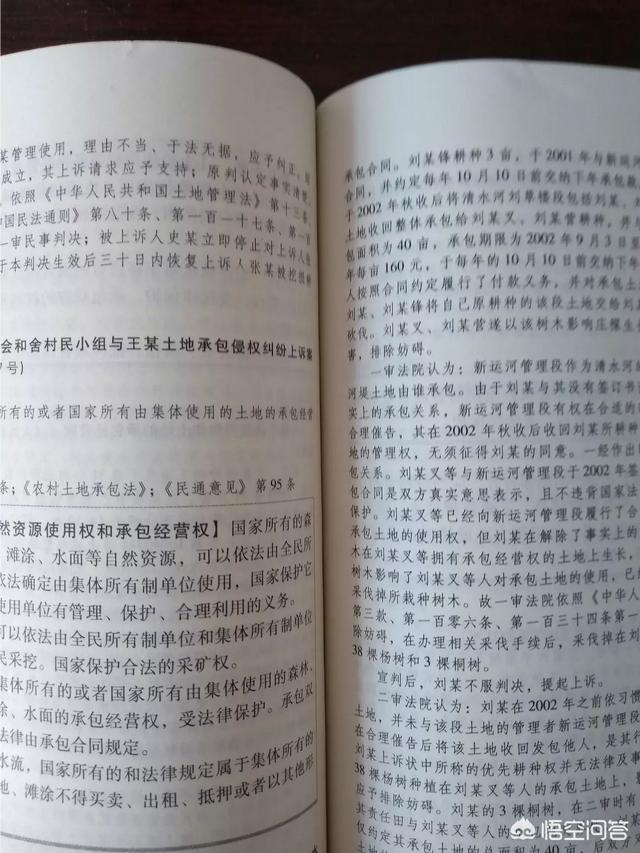 某管理使用，理由不当、于法无据，应予纠正。
成立，其上诉请求应予支持；原判认定事实清楚，
依照《中华人民共和国土地管理法》第十三条
和国民法通则》第八十条、第一百一十七条、第一百
一审民事判决；被上诉人史某立即停止对上诉人张
于本判决生效后三十日内恢复上诉人张某被挖耕种
会和舍村民小组与王某土地承包侵权纠纷上诉案
7号）
所有的或者国家所有由集体使用的土地的承包经营
条；《农村土地承包法》；《民通意见》第95条
然资源使用权和承包经营权】国家所有的森
滩涂、水面等自然资源，可以依法由全民所
依法确定由集体所有制单位使用，国家保护它
使用单位有管理、保护、合理利用的义务。
可以依法由全民所有制单位和集体所有制单位
民采挖。国家保护合法的采矿权。
集体所有的或者国家所有由集体使用的森林、
涂、水面的承包经营权，受法律保护。承包双
法律由承包合同规定。
水流，国家所有的和法律规定属于集体所有的
地、滩涂不得买卖、出租、抵押或者以其他形
承包合同。刘某锋耕种3亩，于2001年与新运河
合同，并约定每年10月10日前交纳下年承包款
于2002年秋收后将清水河刘草楼段包括刘某、刘
土地收回整体承包给刘某叉、刘某营耕种，并与
包面积为40亩，承包期限为2002年9月3日至
年每亩160元，于每年的10月10日前交纳下年
人按照合同约定履行了付款义务，并对承包土
刘某、刘某锋将自己原耕种的该段土地交给刘某
砍伐。刘某叉、刘某营遂以该树木影响庄稼生长
害，排除妨碍。
一审法院认为：新运河管理段作为清水河的
河堤土地由谁承包。由于刘某与其没有签订书
实上的承包关系，新运河管理段有权在合适的
合理催告，其在2002年秋收后收回刘某所耕种
地的管理权，无须征得刘某的同意。一经作出
包关系。刘某叉等与新运河管理段于2002年签
包合同是双方真实意思表示，且不违背国家法
保护。刘某叉等已经向新运河管理段履行了合
土地的使用权，但刘某在解除了事实上的
木在刘某叉等拥有承包经营权的土地上生长，
树木影响了刘某叉等人对承包土地的使用，已
采伐掉所栽种树木。故一审法院依照《中华人
第三款、第一百零六条、第一百三十四条第一
除妨碍，在办理相关采伐手续后，采伐掉在刘
38棵杨树和3棵桐树。
宣判后，刘某不服判决，提起上诉。
二审法院认为：刘某在2002年之前依习惯
土地，并未与该段土地的管理者新运河管理段
在合理催告后将该土地收回发包他人，是其行
刘某上诉状中所称的优先耕种权并无法律及事
38棵杨树种植在刘某叉等人的承包土地上，
应予排除妨碍。刘某的3棵桐树，在二审时有
其责任田与刘某叉等人的
仅约定其承包土地的总面积为40亩，后双方
悟空问答